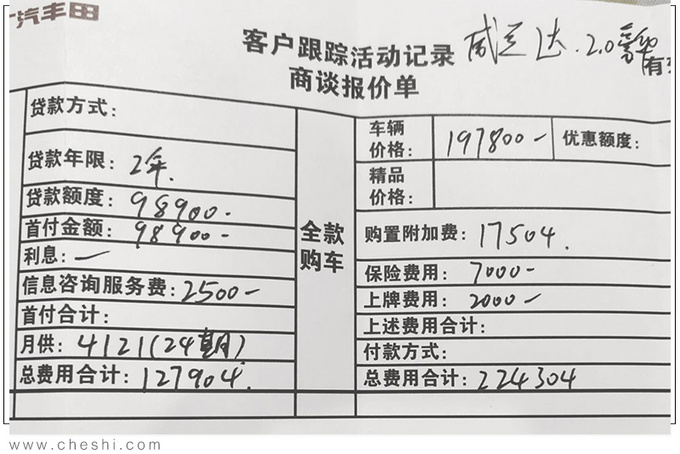 汽丰田
客户跟踪活动记录 威兰达.2.0豪华
商谈报价单
贷款方式：
贷款年限：2年.
贷款额度：98900-
首付金额：98900-
利息：—
信息咨询服务费：2500-
首付合计：
月供：4121(24期)
总费用合计：127904.
全款
购车
车辆
价格：
197800-
优惠额度：
精品
价格：
购置附加费：17504.
保险费用：7000-
上牌费用：2000-
上述费用合计：
付款方式：
总费用合计：224304
www.cheshi.com